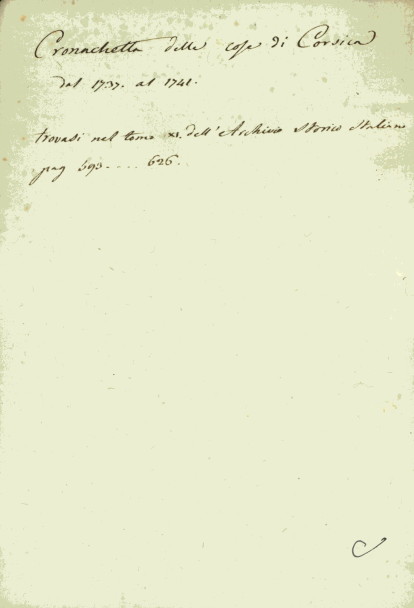 Cronachetta delle cose di Corsica
dal 1737. al 1741.
trovasi nel tomo XI. dell'Archivio Storico Italiano
pag 593.....626.